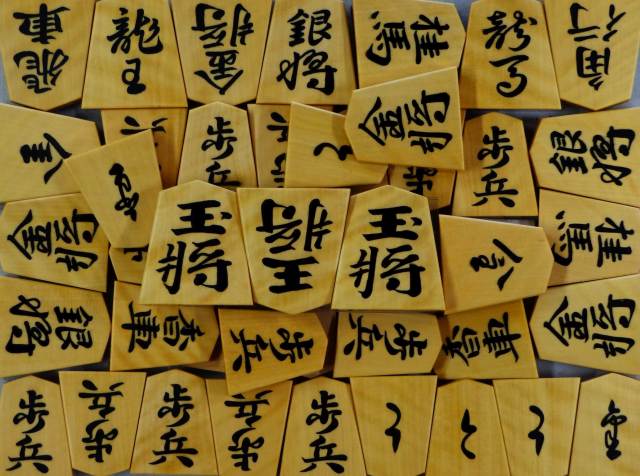 飛車
龍王
金将
銀将
桂馬
龍馬
角行
歩兵
と
金将
歩兵
銀将
金将
玉将
王将
玉将
桂馬
銀将
香車
歩兵
歩兵
香車
金将
歩兵
歩兵
歩兵
歩兵
歩兵
と
と
と